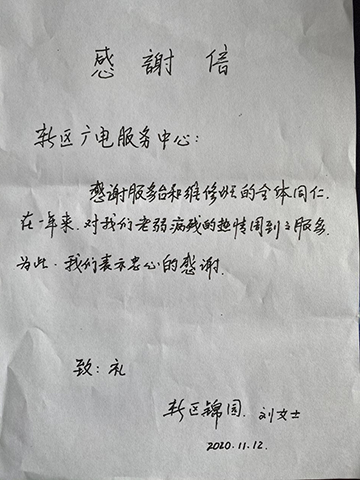 感謝信
新区广电服务中心：
感谢服务台和维修班的全体同仁.
在一年来.对我们老弱病残的热情周到之服务.
为此.我们表示忠心的感谢.
致：礼
新区锦园.刘女士
2020.11.12.